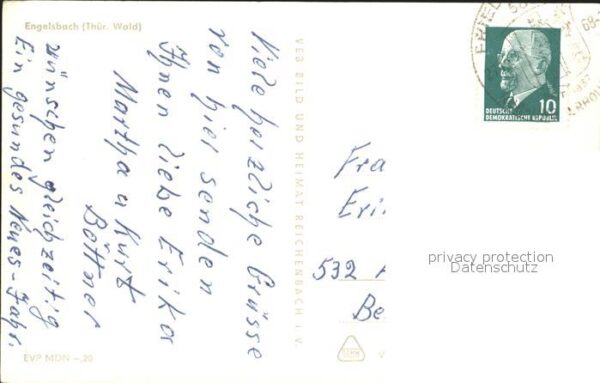 Engelsbach (Thür. Wald)
Viele herzliche Grüsse
von hier senden
Ihnen liebe Erika
Martha u Kurt
Böttner
wünschen gleichzeitig
Ein gesundes Neues-Jahr.
EVP MDN –,20
VEB BILD UND HEIMAT REICHENBACH i. V.
10
DEUTSCHE
DEMOKRATISCHE REPUBLIK
Fra
Eri
532
Be
privacy protection
Datenschutz
V